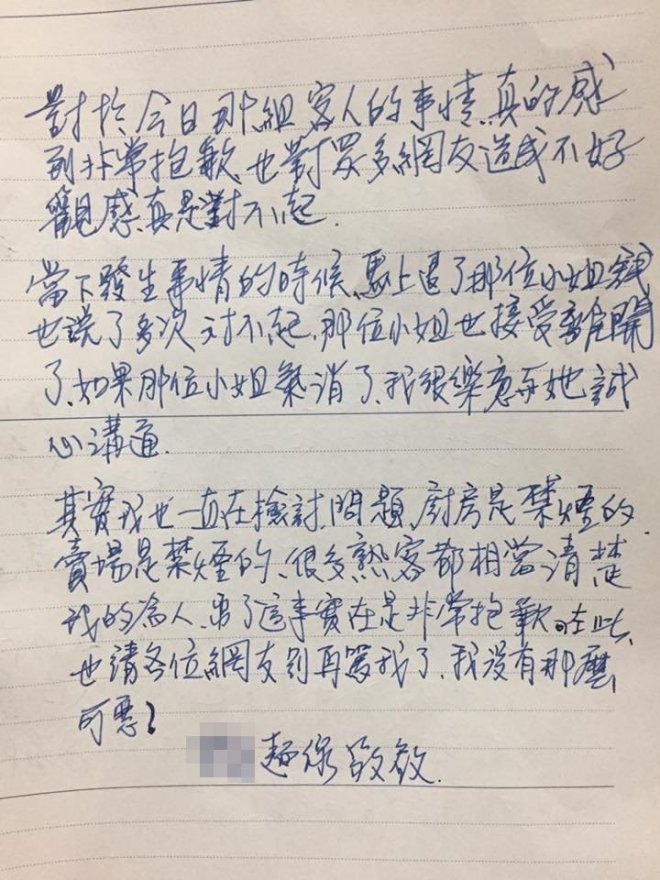 對於今日那組客人的事情,真的感
到非常抱歉,也對眾多網友造成不好
觀感,真是對不起.
當下發生事情的時候,馬上退了那位小姐錢
也說了多次对不起,那位小姐也接受離開
了,如果那位小姐氣消了,我很樂意與她誠
心溝通.
其實我也一直在檢討問題,厨房是禁煙的
賣場是禁煙的、很多熟客都相當清楚
我的為人,出了這事實在是非常抱歉,在此,
也請各位網友別再罵我了,我没有那麼
可惡!
麵 敬